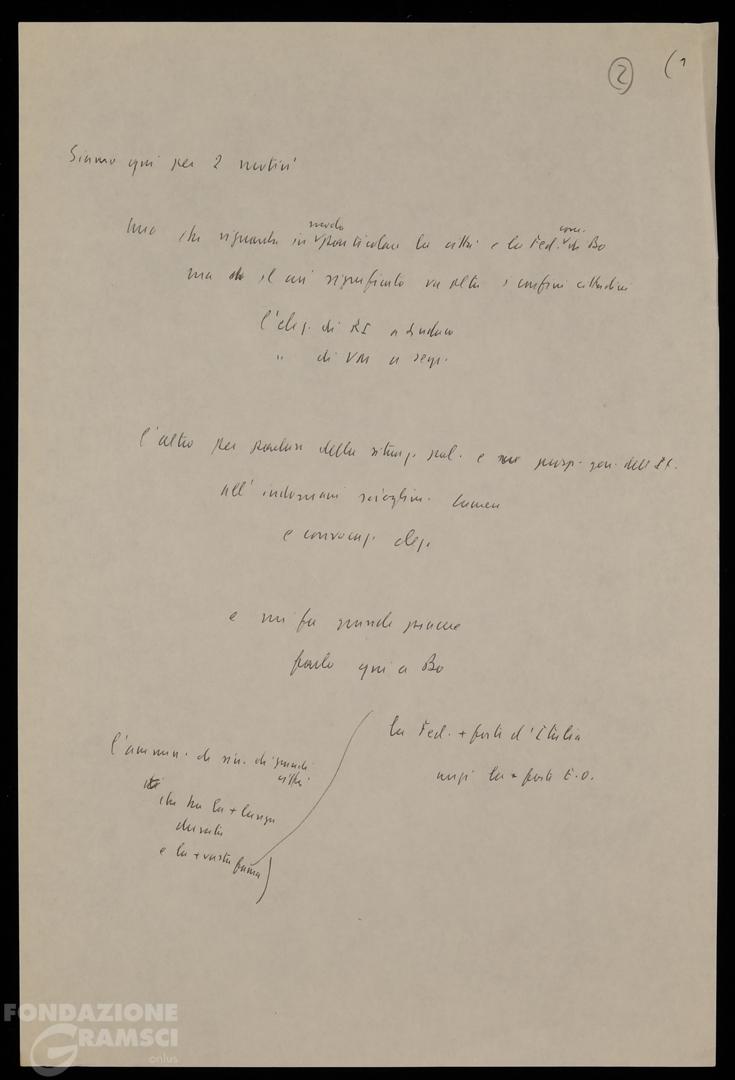 2
(1
Siamo qui per 2 motivi
Uno che riguarda in modo particolare la città e la Fed. com. di Bo
ma il cui significato va oltre i confini cittadini
l'elez. di RI a Sindaco
" di VM a segr.
l'altro per parlare della situaz. pol. e prosp. gen. dell'It.
all'indomani scioglim. Camere
e convocaz. elez.
e mi fa grande piacere
farlo qui a Bo
la Fed. + forte d'Italia
anzi la + forte E.O.
l'ammin. di sin. di grandi
città
che ha la + lunga
durata
e la + vasta fama)
FONDAZIONE
GRAMSCI
onlus